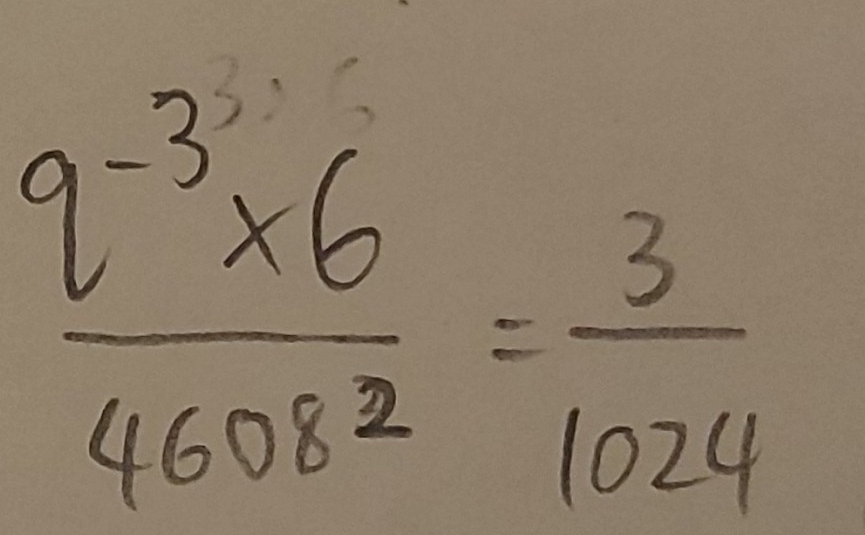 q⁻³ × 6 / 4608² = 3 / 1024